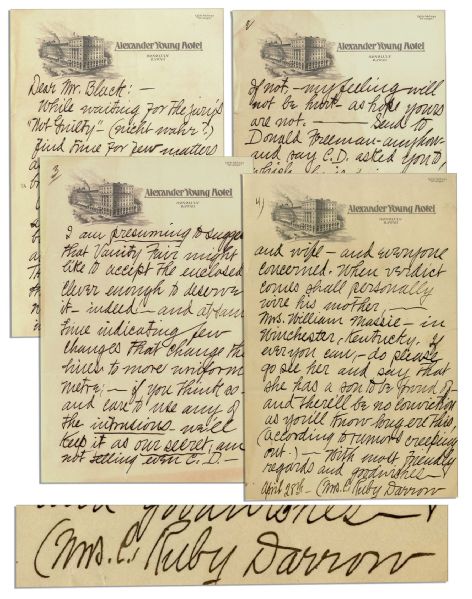 Alexander Young Hotel
HONOLULU
HAWAII
Dear Mr. Black: —
While waiting for the jury's
"Not Guilty — (nicht wahr?)
find time for few matters
2/
Alexander Young Hotel
HONOLULU
HAWAII
If not — my feeling will
not be hurt — as hope yours
are not. —— Send to
Donald Freeman — anyhow —
and say C.D. asked you to,
3
Alexander Young Hotel
HONOLULU
HAWAII
I am presuming to sugges
that Vanity Fair might
like to accept the enclosed
clever enough to deserve
it — indeed — and at same
time indicating few
changes that change the
lines to more uniform
metre; — if you think so —
and care to use any of
the intrusions we'll
keep it as our secret; am
not telling even C.D. —
4)
Alexander Young Hotel
HONOLULU
HAWAII
and wife — and everyone
concerned. When verdict
comes shall personally
wire his mother, —
Mrs. William Massie — in
Winchester, Kentucky. If
ever you can, — do please
go see her and say that
she has a son to be proud of —
and there'll be no conviction
as you'll know long ere this,
(according to rumors creeping
out.) — With most friendly
regards and good wishes —
April 28th — (Mrs. C.) Ruby Darrow
and good wishes —
(Mrs. C.) Ruby Darrow